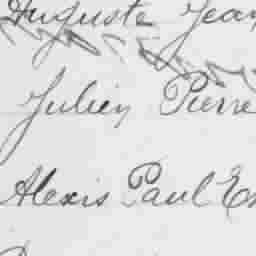 Auguste Jean
Julien Pierre
Alexis Paul